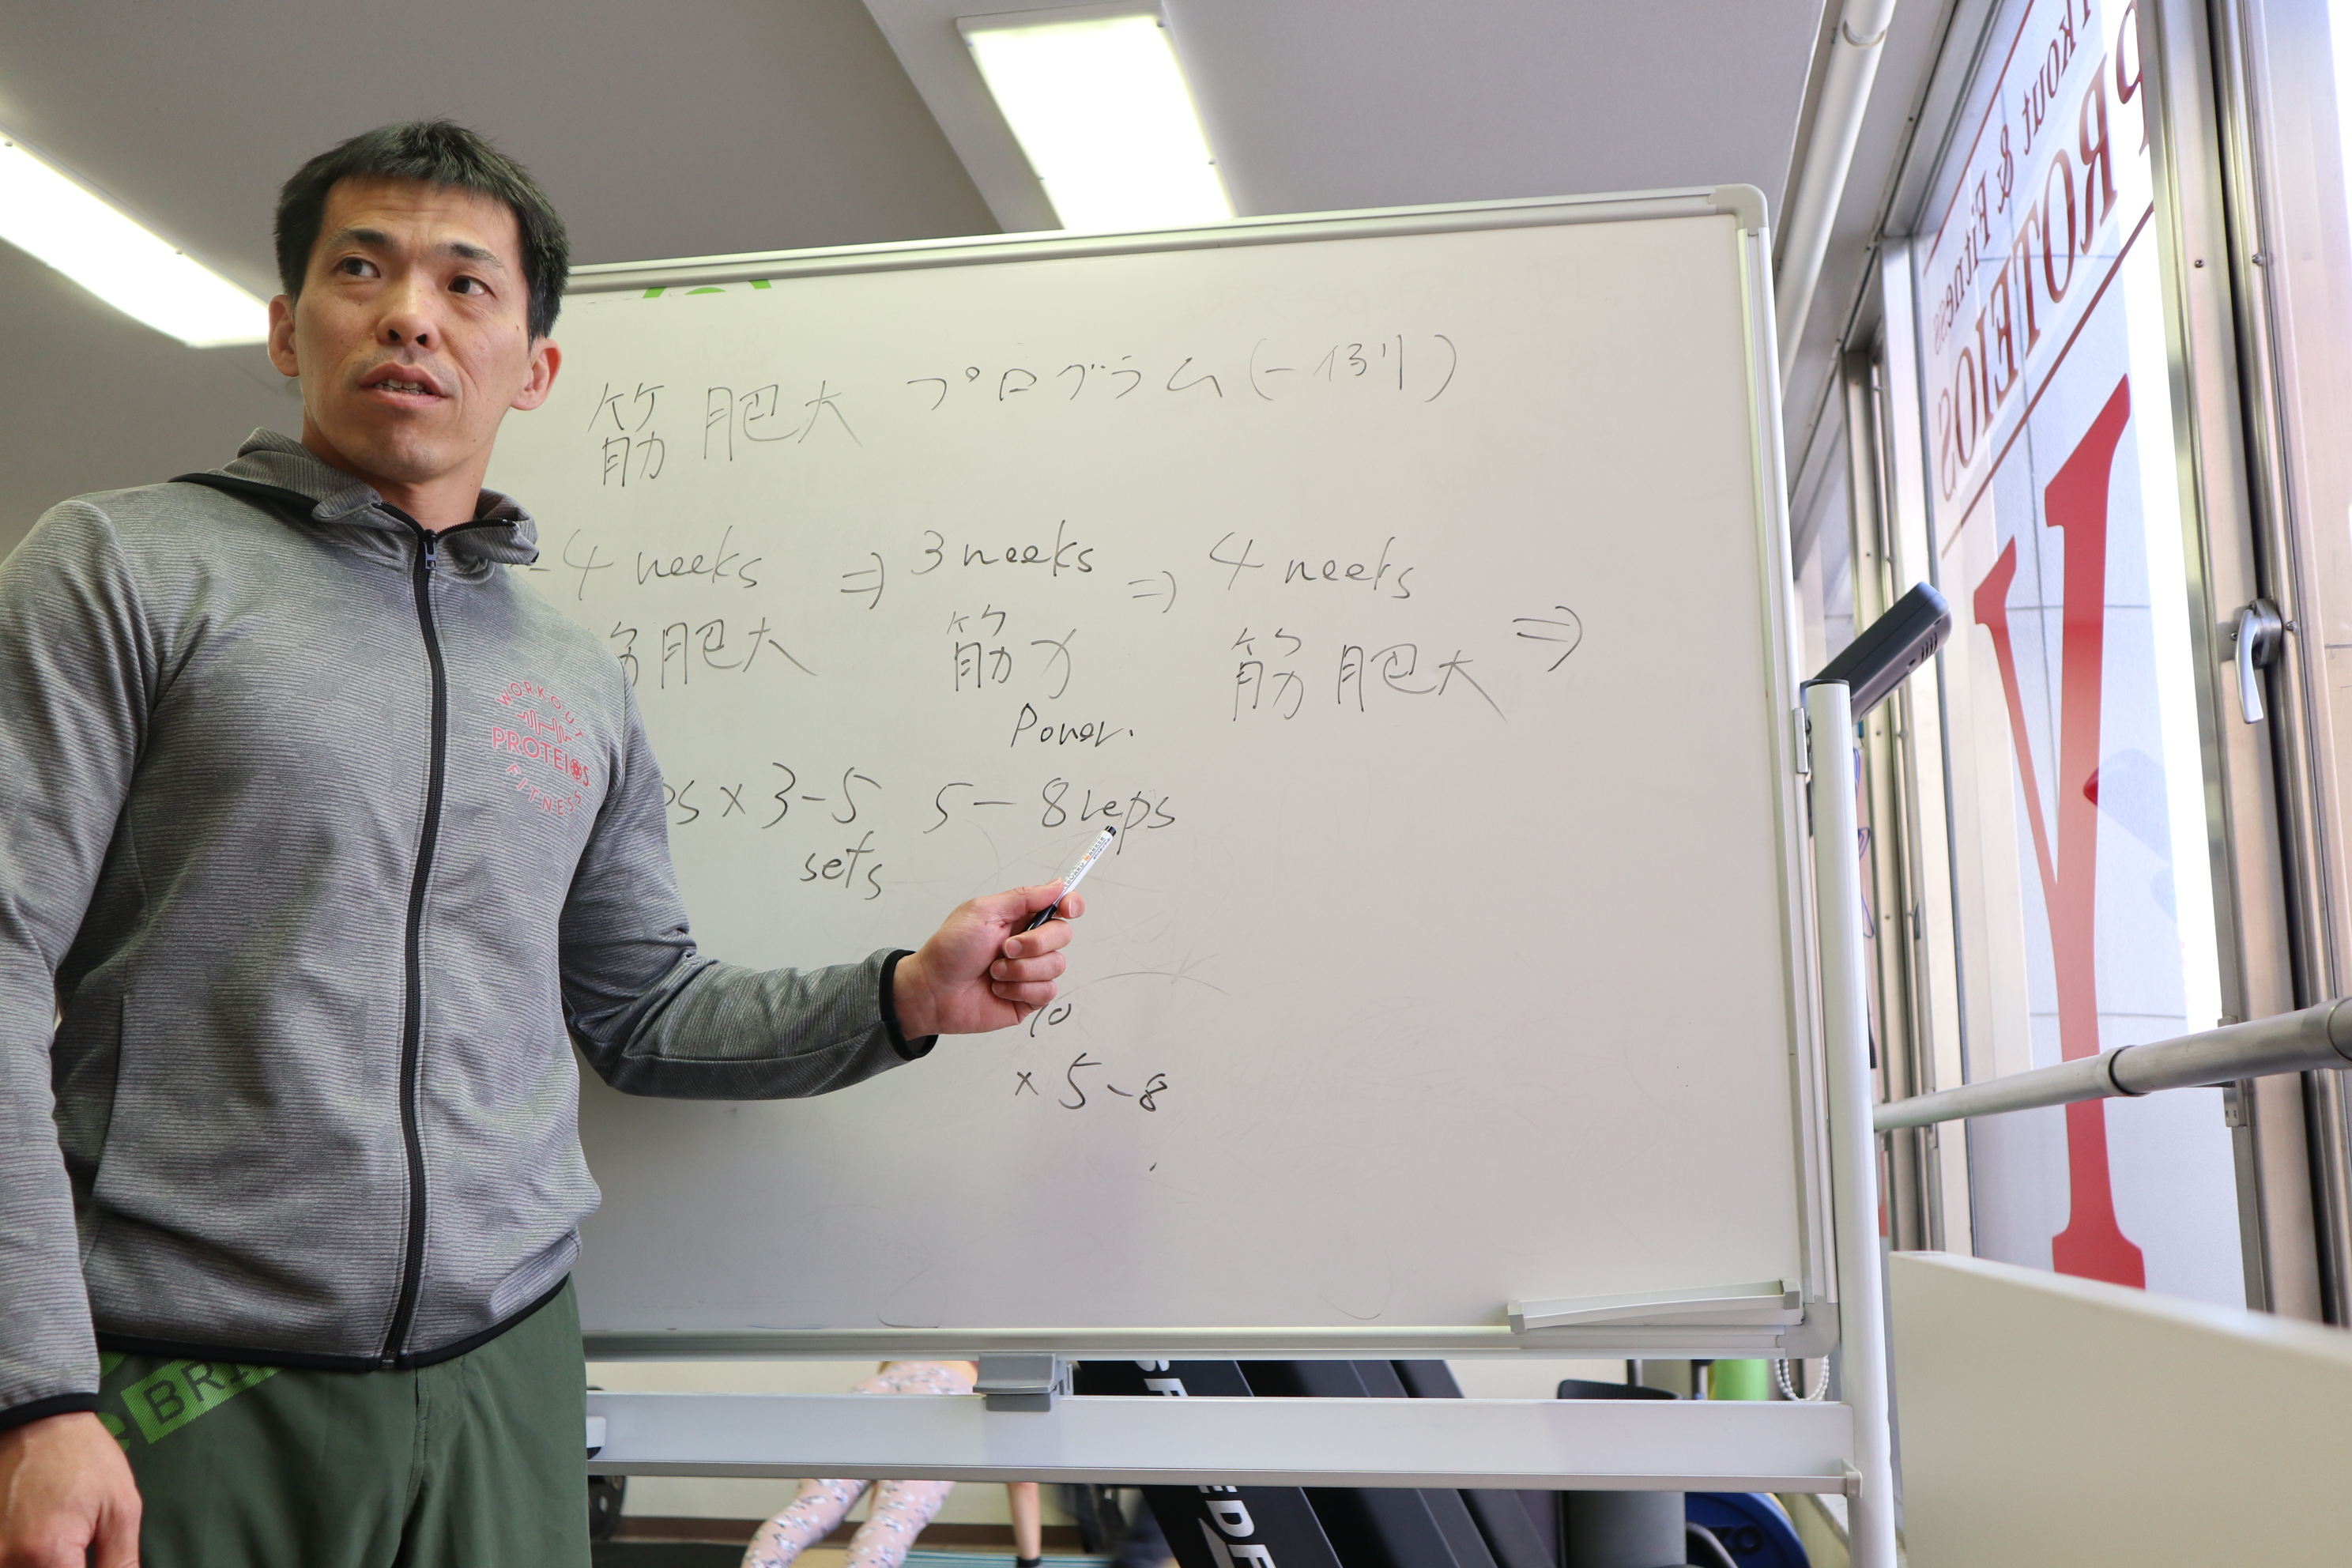 筋肥大 プログラム (一例)
-4 weeks ⇒ 3 weeks ⇒ 4 weeks
筋肥大 筋力 筋肥大 ⇒
Power.
ps × 3-5 5-8 reps
sets
10
× 5-8
WORKOUT
PROTEIOS
FITNESS
kout & Fitness
PROTEIOS
Y